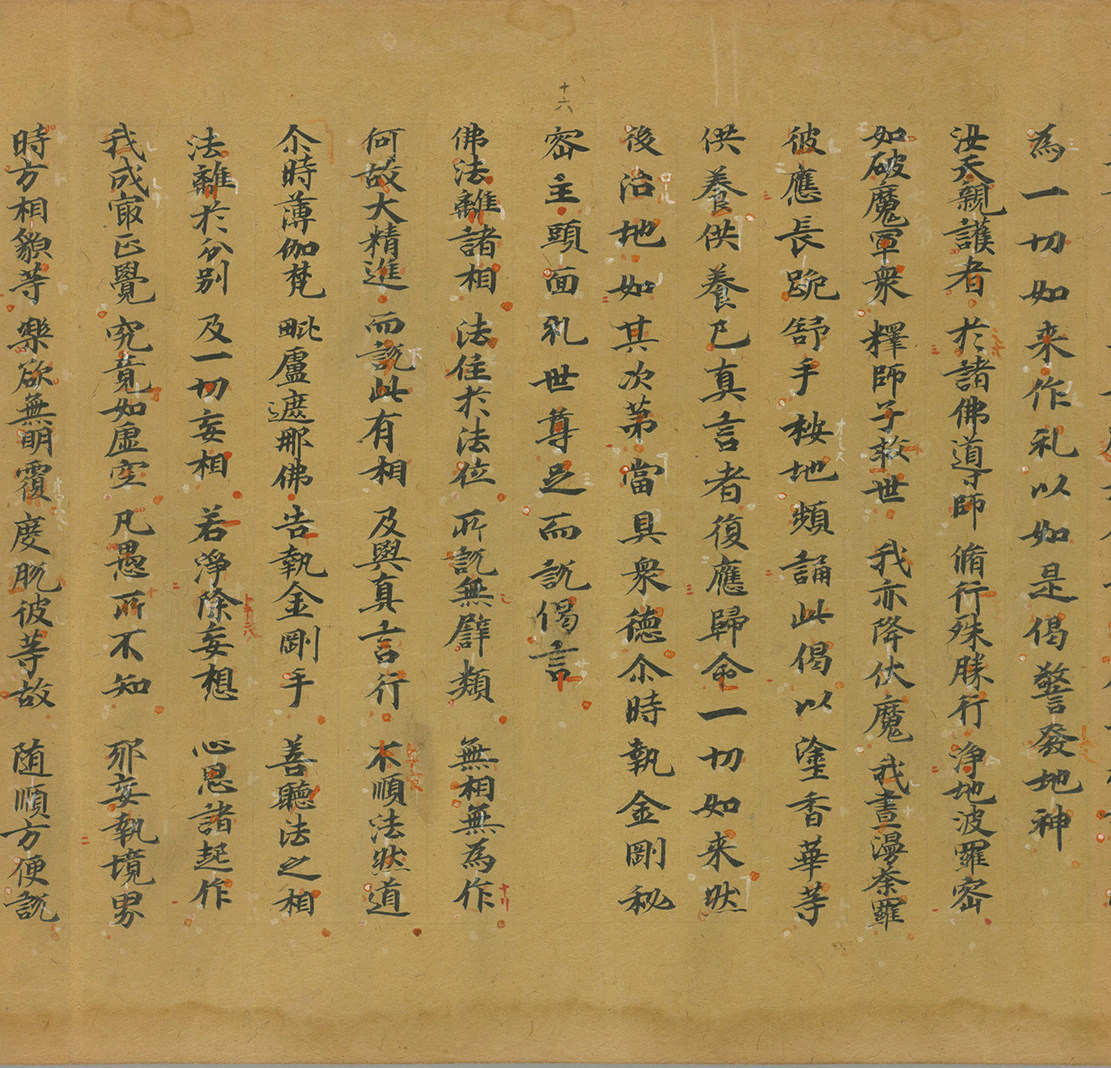 為一切如来作礼以如是偈警發地神
汝天親護者 於諸佛導師 脩行殊勝行 淨地波羅蜜
如破魔軍衆 釋師子救世 我亦降伏魔 我畫漫荼羅
彼應長跪舒手桉地頻誦此偈以塗香華等
供養供養已真言者復應歸命一切如来然
後治地如其次第當具衆德尒時執金剛秘
密主頭面礼世尊足而說偈言
十六
佛法離諸相 法住於法位 所說無譬類 無相無為作
何故大精進 而說此有相 及與真言行 不順法然道
尒時薄伽梵 毗盧遮那佛 告執金剛手 善聽法之相
法離於分别 及一切妄相 若淨除妄想 心思諸起作
我成㝡正覺 究竟如虛空 凡愚所不知 邪妄執境界
時方相貌等 樂欲無明覆 度脫彼等故 随順方便說